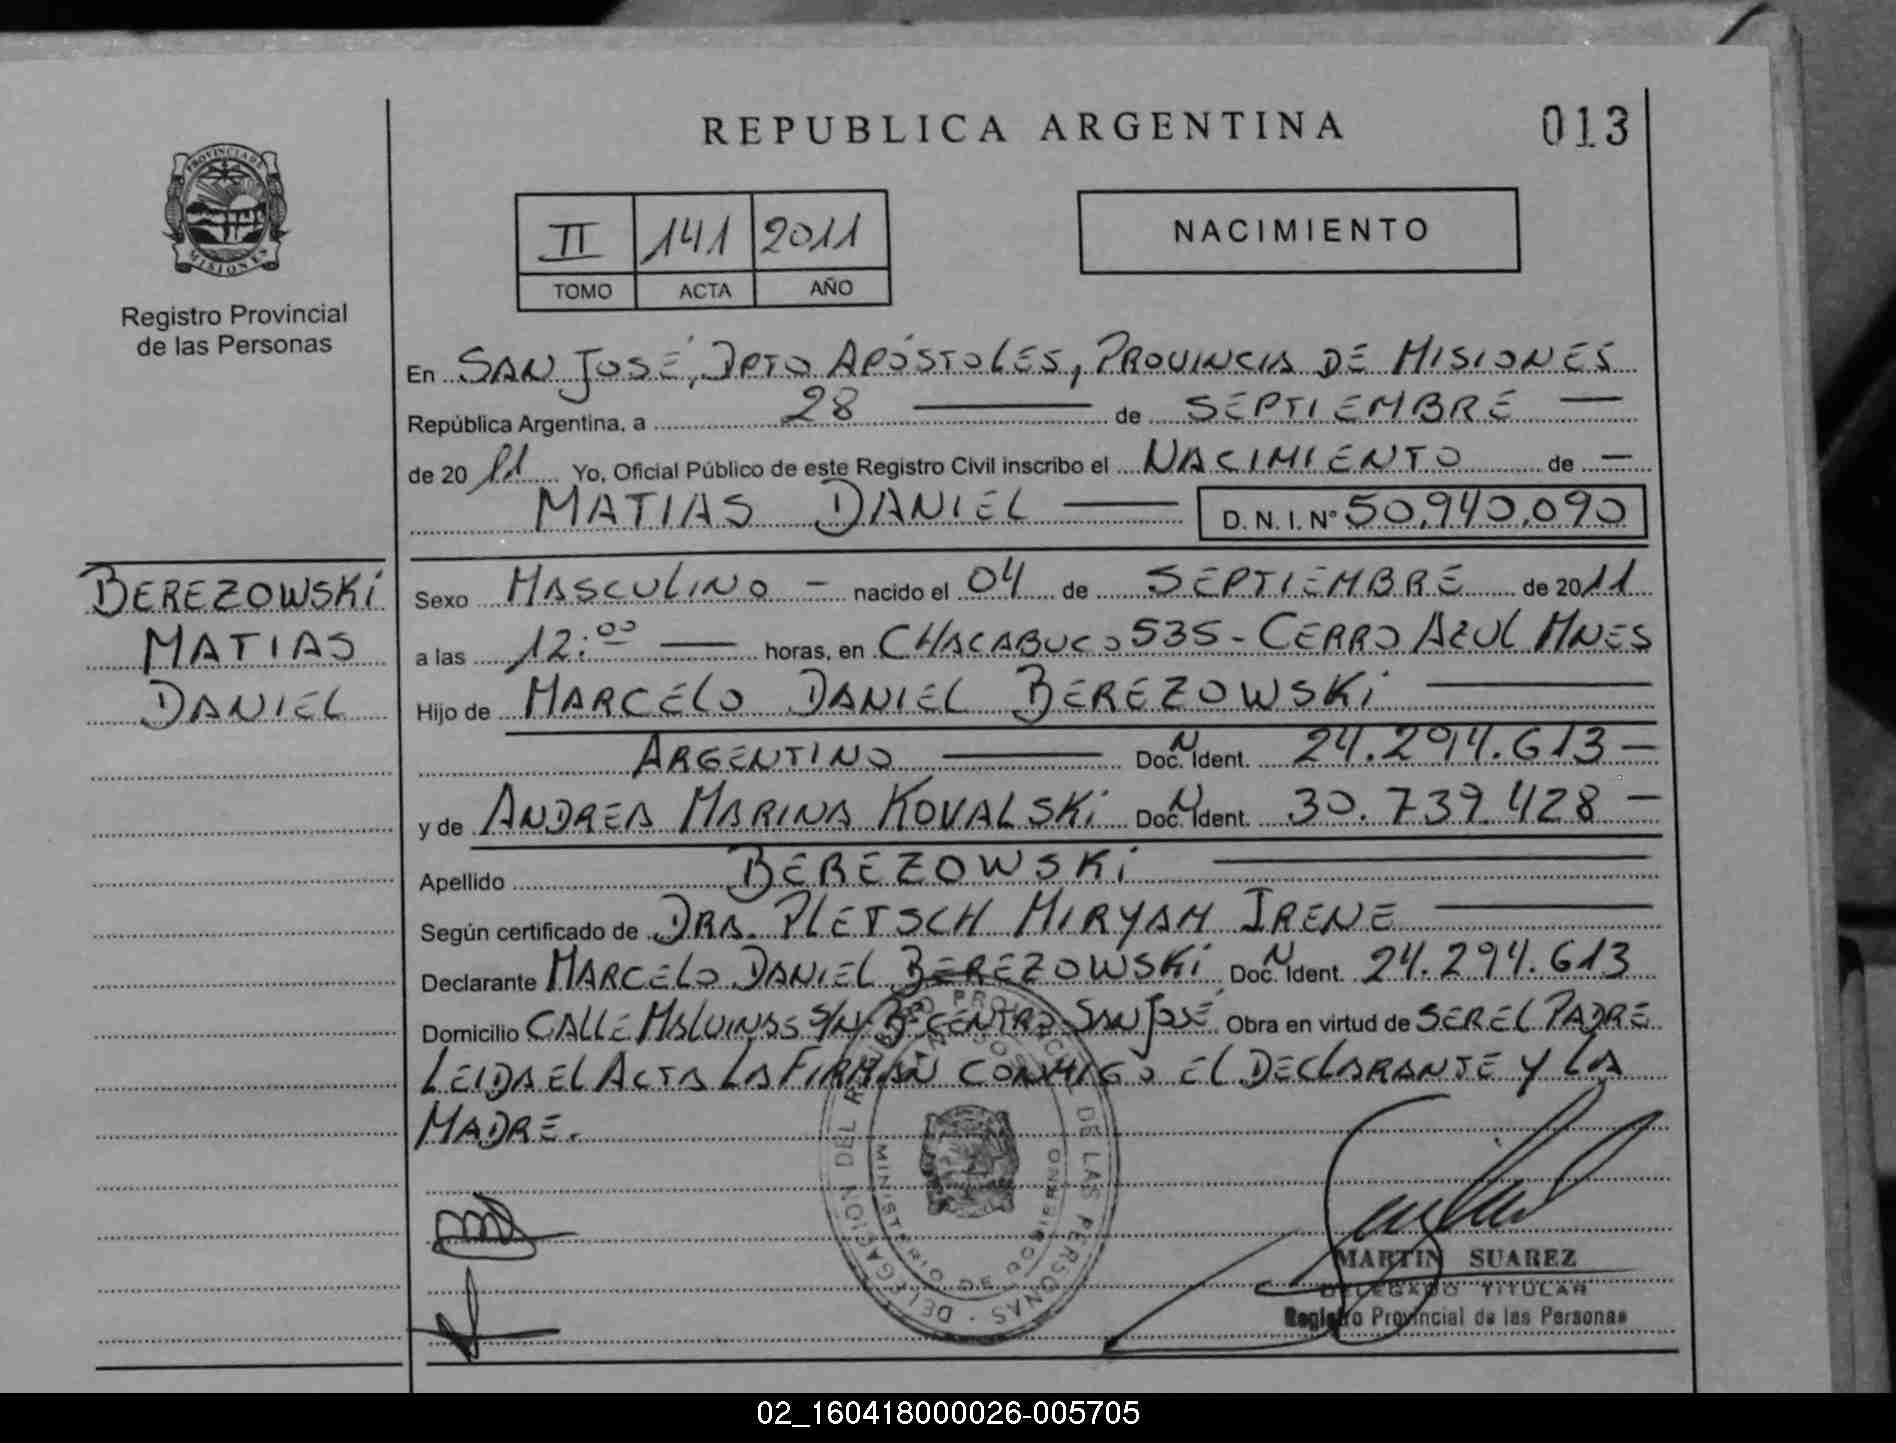 REPUBLICA ARGENTINA
013
PROVINCIA DE
MISIONES
Registro Provincial
de las Personas
II 141 2011
TOMO ACTA AÑO
NACIMIENTO
En SAN JOSÉ, DPTO APÓSTOLES, PROVINCIA DE MISIONES
República Argentina, a 28 de SEPTIEMBRE
de 2011 Yo, Oficial Público de este Registro Civil inscribo el NACIMIENTO de
MATIAS DANIEL D. N. I. Nº 50.940.090
BEREZOWSKI
MATIAS
DANIEL
Sexo MASCULINO nacido el 04 de SEPTIEMBRE de 2011
a las 12:00 horas, en CHACABUCO 535 - CERRO AZUL MNES
Hijo de MARCELO DANIEL BEREZOWSKI
ARGENTINO Doc. N Ident. 24.294.613
y de ANDREA MARINA KOVALSKI Doc. N Ident. 30.739.428
Apellido BEREZOWSKI
Según certificado de DRA. PLETSCH MIRYAM IRENE
Declarante MARCELO DANIEL BEREZOWSKI Doc. N Ident. 24.294.613
Domicilio CALLE MALVINAS S/N Bº CENTRO SAN JOSÉ Obra en virtud de SER EL PADRE
LEIDA EL ACTA LA FIRMAN CONMIGO EL DECLARANTE Y LA
MADRE.
DELEGACION DEL REGISTRO PROVINCIAL DE LAS PERSONAS
MINISTERIO DE GOBIERNO
MARTIN SUAREZ
DELEGADO TITULAR
Registro Provincial de las Personas
02_160418000026-005705